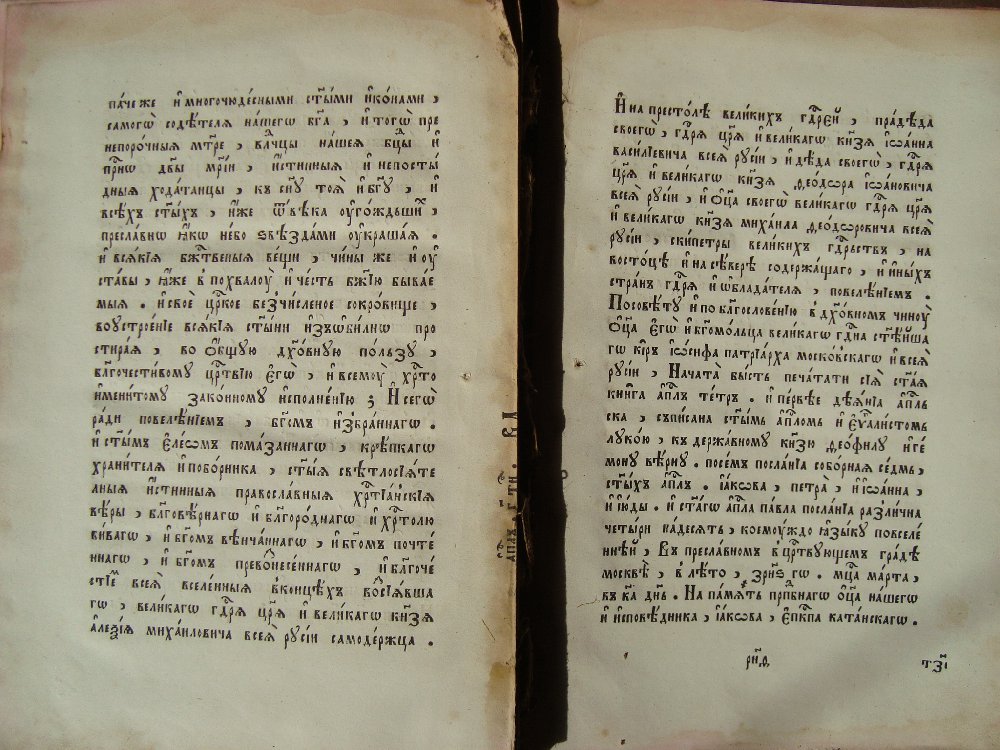 па́че же и҆ многочюде́сными ст҃ы́ми и҆ко́нами ,
самогѡ̀ содѣ́теля на́шегѡ бг҃а , и҆ тогѡ̀ пре
непоро́чныя мт҃ре , влⷣчцы на́шея бцⷣы и҆
прⷭ҇нѡ дв҃ы мр҃і́и , и҆́стинныя и҆ непосты́
дныя хода́таицы , къ сн҃у тоя̀ и҆ бг҃у , и҆
всѣ́хъ ст҃ы́хъ , и҆̀же ѿ вѣ́ка оу҆гожⷣьшиⷯ ,
пресла́внѡ ꙗ҆́кѡ не́бо ѕвѣзда́ми оу҆краша́я .
и҆ вся́кія бжⷭ҇твеныя ве́щи , чи́ны же и҆ оу҆
ста́вы , ꙗ҆́же в похвалоу̀ и҆ че́сть бж҃ію быва́е
мыя . и҆ своѐ црⷭ҇кое безчи́сленое сокро́вище ,
во устрое́ніе вся́кія ст҃ы́ни и҆зѡби́лнѡ про
стира́я , во ѻ҆́бщую дх҃о́вную по́льзу ,
бл҃гочести́вому црⷭ҇твію є҆гѡ̀ , и҆ всемоу̀ хрⷭ҇то
имени́тому зако́нному исполне́нію ; И҆ сегѡ̀
ра́ди повелѣ́ніемъ , бг҃омъ и҆збра́ннагѡ .
и҆ ст҃ы́мъ є҆ле́ѡмъ пома́заннагѡ , крѣ́пкагѡ
храни́теля и҆ побо́рника , ст҃ы́я свѣтлосїя́те
лныя и҆́стинныя правосла́вныя хрⷭ҇тїа́нскїя
вѣ́ры , бл҃говѣ́рнагѡ и҆ бл҃горо́днагѡ и҆ хрⷭ҇толю
би́вагѡ , и҆ бг҃омъ вѣнча́ннагѡ , и҆ бг҃омъ почте́
ннагѡ , и҆ бг҃омъ превоⷥнесе́ннагѡ , и҆ бл҃гоче
стїеⷨ всея̀ вселе́нныя вконцѣ́хъ воⷭсїя́вша
гѡ , вели́кагѡ гдⷭ҇ря цр҃я̀ и҆ вели́кагѡ кн҃зя
а҆леѯі́я миха́иловича всея̀ русі́и самоде́ржца .
а҆пⷭ҇лъ .
И҆ на престо́лѣ вели́кихъ гдⷭ҇ре́й , пра́дѣда
своегѡ̀ , гдⷭ҇ря цр҃я̀ и҆ вели́кагѡ кн҃зя і҆ѡа́нна
васи́лїевича всея̀ русі́и , и҆ дѣ́да своегѡ̀ , гдⷭ҇ря
цр҃я̀ и҆ вели́кагѡ кн҃зя ѳео́дѡра і҆ѡа́новича
всея̀ русі́и , и҆ ѻ҆ц҃а̀ своегѡ̀ вели́кагѡ гдⷭ҇ря цр҃я̀
и҆ вели́кагѡ кн҃зя миха́ила ѳео́дѡровича всея̀
русі́и , ски́петры вели́кихъ гдⷭ҇рствъ , на
восто́цѣ и҆ на сѣ́верѣ содержа́щаго , и҆ и҆ны́хъ
стра́нъ гдⷭ҇ря и҆ ѡ҆блада́теля , повелѣ́ніемъ .
По совѣ́ту и҆ по бл҃гослове́нію в дх҃о́вномъ чиноу̀
ѻ҆ц҃а̀ є҆гѡ̀ и҆ бг҃омо́льца вели́кагѡ гдⷭ҇на ст҃ѣ́йша
гѡ ки́ръ і҆ѡ́сифа патрїа́рха моско́вскагѡ и҆ всея̀
русі́и , Нача́та бы́сть печа́тати сїя̀ ст҃а́я
книга а҆пⷭ҇лъ те́тръ . и҆ пе́рвѣе дѣя́нїя а҆пⷭ҇ль
ска , съпи́сана ст҃ы́мъ а҆пⷭ҇ломъ и҆ є҆ѵⷢ҇али́стомъ
луко́ю , къ держа́вному кн҃зю ѳео́филу и҆ ге
мону вѣ́рну . посе́мъ посла́нїя собо́рная се́дмь ,
ст҃ы́хъ а҆пⷭ҇лъ . і҆а́кѡва , петра̀ , и҆ і҆ѡа́нна ,
и҆ і҆ю́ды . и҆ ст҃а́гѡ а҆пⷭ҇ла па́вла посла́нїя разли́чна
четы́ри на́десять , коемоу́ждо ꙗ҆зы́ку повселе́
ннѣ́й , Въ пресла́вномъ и҆ црⷭ҇твующемъ гра́дѣ
москвѣ̀ , в лѣ́то , зрн҃ѕ гѡ . мцⷭ҇а ма́рта ,
въ к҃а дн҃ь . На па́мѧть прпⷣбнагѡ ѻ҆ц҃а̀ на́шегѡ
и҆ исповѣ́дника , і҆а́кѡва , є҆пⷭ҇кпа ката́нскагѡ .
рн҃ѳ тз҃і